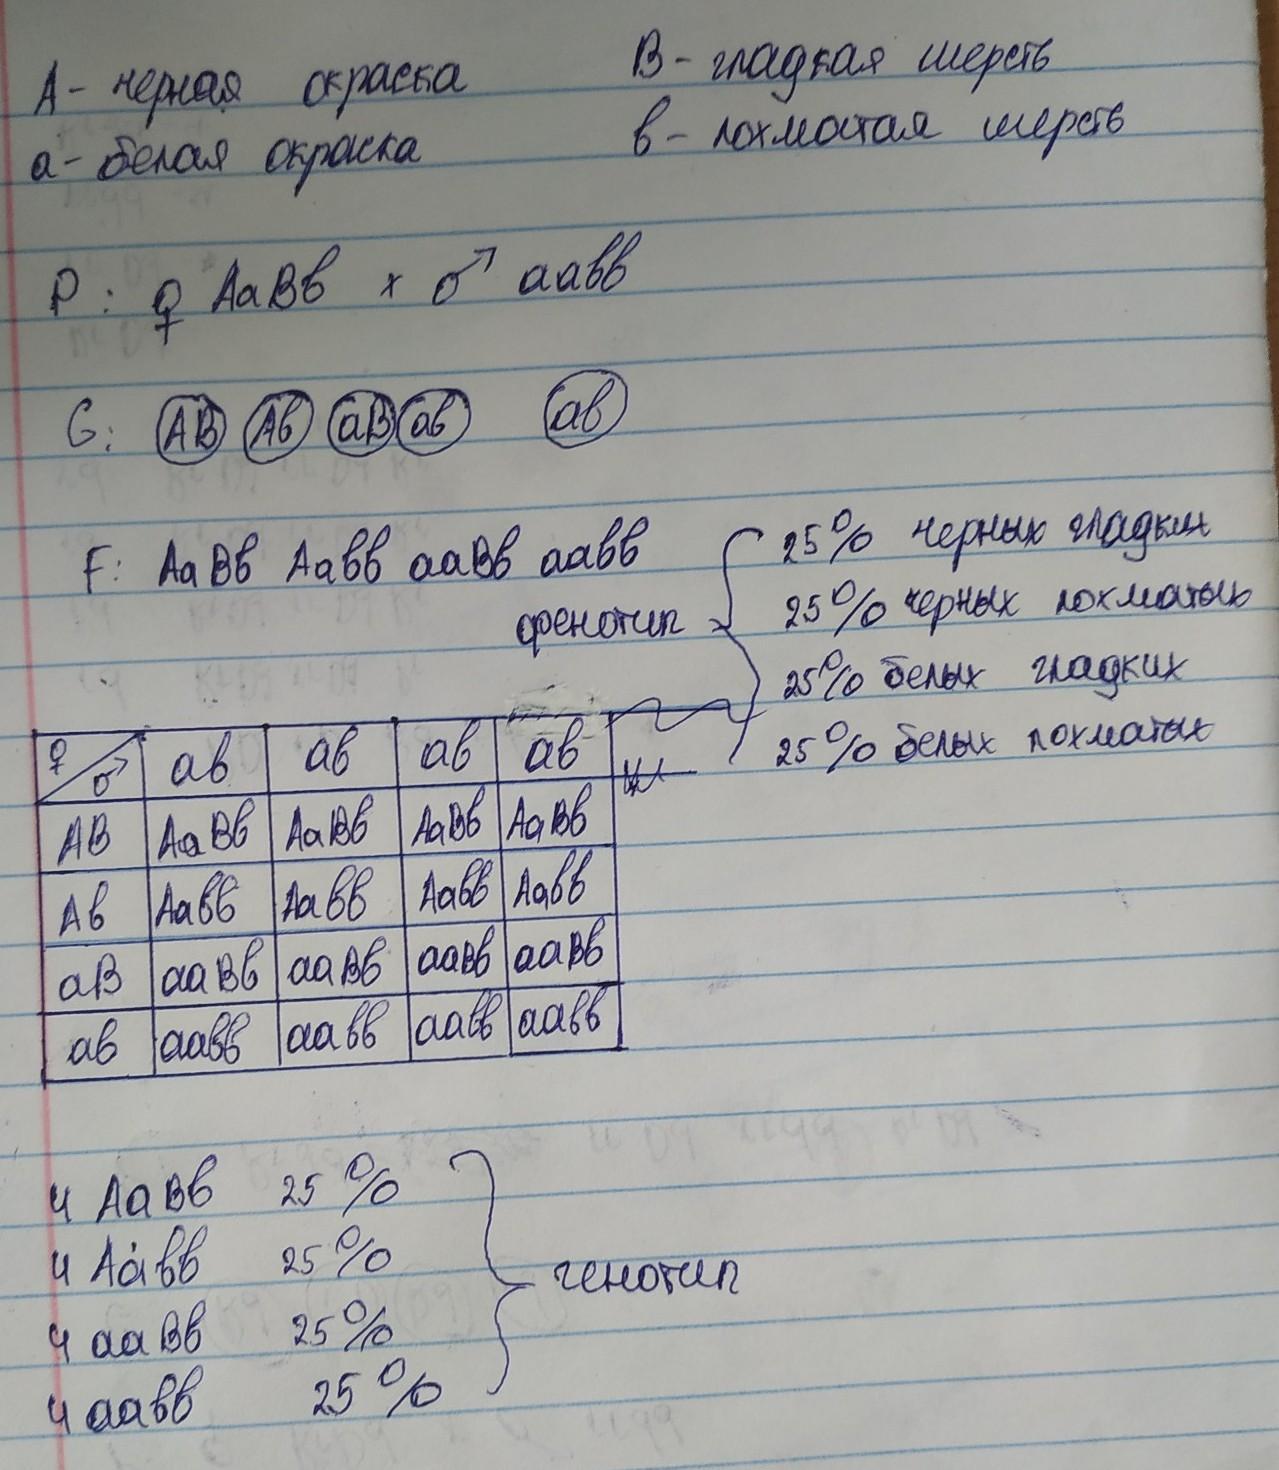 А - черная окраска B - гладкая шерсть
а - белая окраска в - лохматая шерсть
P: ♀ АаВв х ♂ аавв
G: АВ Ав аВ ав ав
F: АаВв Аавв ааВв аавв
фенотип
25% черных гладких
25% черных лохматых
25% белых гладких
25% белых лохматых
♀ ♂ ав ав ав ав
АВ АаВв АаВв АаВв АаВв
Ав Аавв Аавв Аавв Аавв
аВ ааВв ааВв ааВв ааВв
ав аавв аавв аавв аавв
4 АаВв 25%
4 Аавв 25%
генотип
4 ааВв 25%
4 аавв 25%